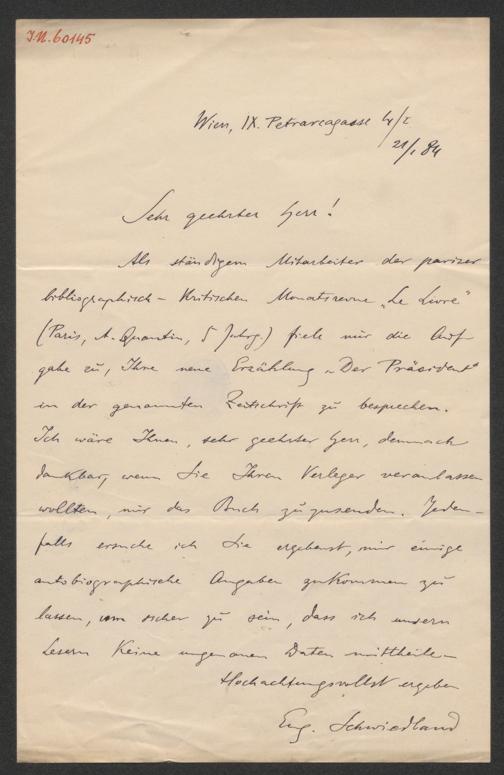 I.N. 60145
Wien, IX. Petrarcagasse 4/I.
21/I 84
Sehr geehrter Herr!
Als ständigem Mitarbeiter der pariser
bibliographisch-kritischen Monatsrevue „Le Livre“
(Paris, A. Quantin, 5 Jahrg.) fiele mir die Auf-
gabe zu, Ihre neue Erzählung „Der Präsident“
in der genannten Zeitschrift zu besprechen.
Ich wäre Ihnen, sehr geehrter Herr, demnach
dankbar, wenn Sie Ihren Verleger veranlassen
wollten, mir das Buch zuzusenden. Jeden-
falls ersuche ich Sie ergebenst, mir einige
autobiographische Angaben zukommen zu
lassen, um sicher zu sein, dass ich unsern
Lesern keine ungenauen Daten mittheile.
Hochachtungsvollst ergeben
Eug. Schwiedland